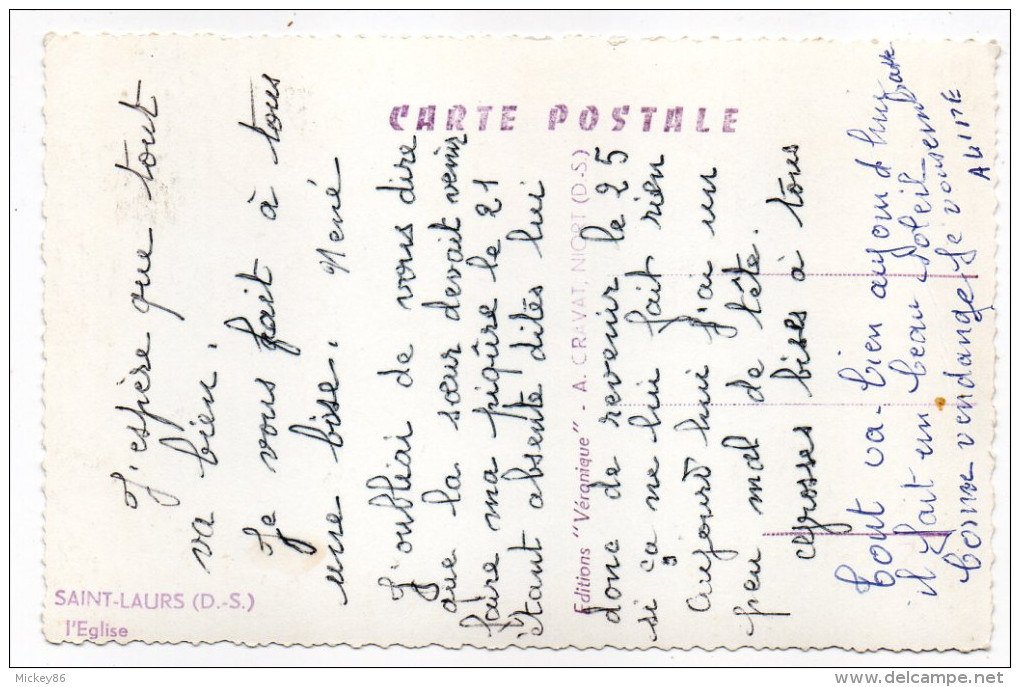 CARTE POSTALE
SAINT-LAURS (D.-S.)
l'Eglise
Editions "Véronique" - A. CRAVAT, NIORT (D-S.)
J'espère que tout
va bien.
Je vous fait à tous
une bise. Nené
J'oubliai de vous dire
que la sœur devait venir
faire ma piqûre le 21
étant absente dites lui
donc de revenir le 25
si ça ne lui fait rien
aujourd hui j'ai un
peu mal de tête.
Grosses bises à tous
Tout va-bien aujourd'hui
il fait un beau soleil
bonne vendange Je vous
Mickey86
delcampe.net